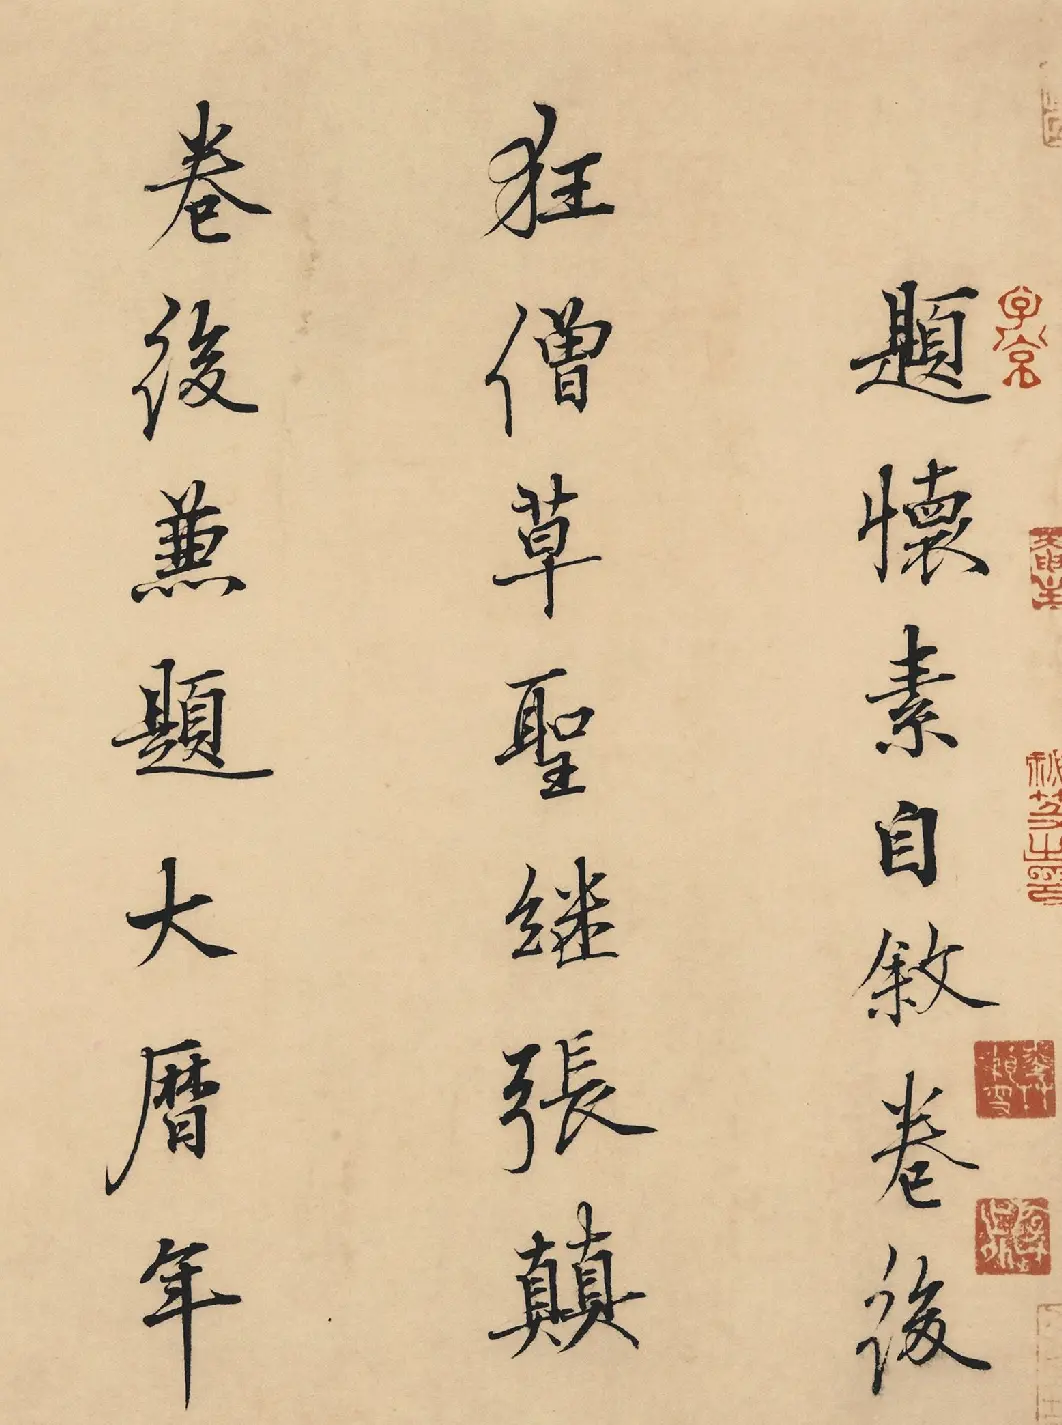 題懷素自敘卷後
狂僧草聖继張顛
卷後兼題大曆年
子京